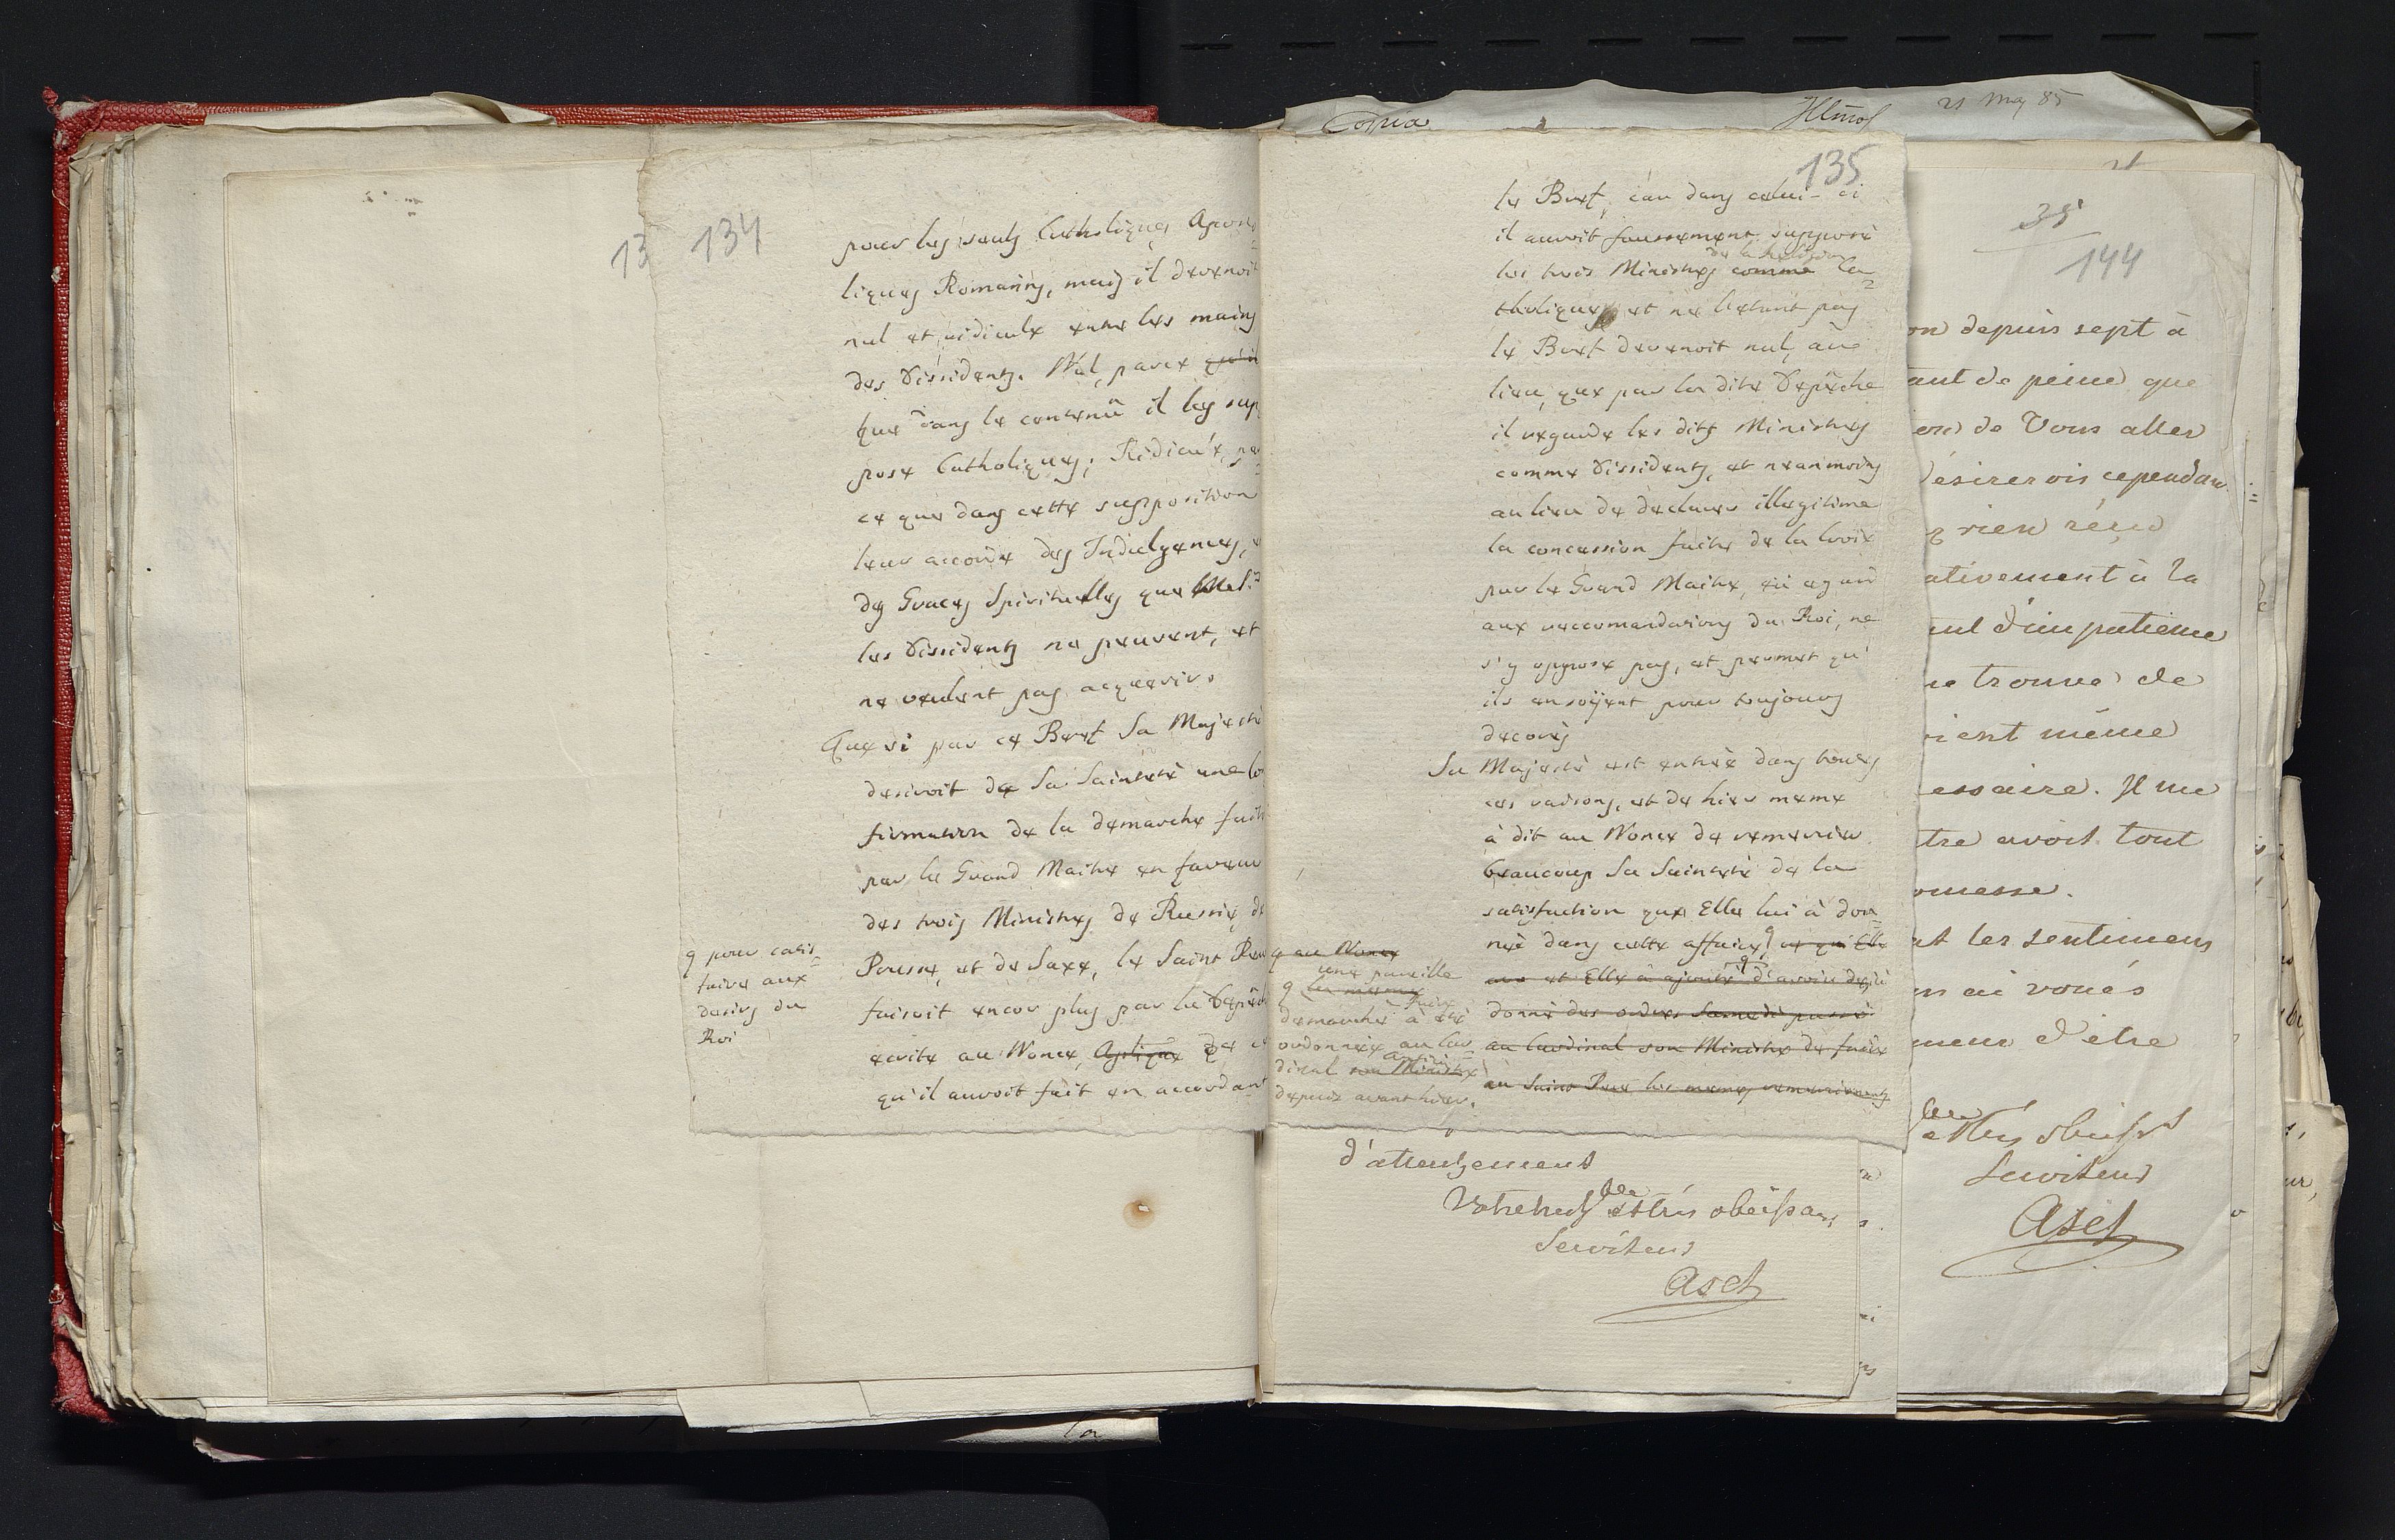 13
134
pour les seuls Catholiques Apos
liques Romains, mais il devenoit
nul et ridicule entre les mains
des Dissidents. Nul, parce qu'il
que dans le contenû il les sup
pose Catholiques; Ridicule, par
ce que dans cette supposition
leur accorde des Indulgences, e
des Graces Spirituelles que
les Dissidents ne peuvent, et
ne veulent pas acquerir.
Que si par ce Bref Sa Majesté
desiroit de Sa Sainteté une Co
firmation de la demarche faite
par le Grand Maitre en faveur
des trois Ministres de Russie, de
Prusse, et de Saxe, le Saint Pere
faisoit encor plus par la Depêche
ecrite au Nonce, Aplique de ce
qu'il auroit fait en accordant
q pour satis
faire aux
desirs du
Roi
Copia
Illmo
21 May 85
135
le Bref, car dans celui-ci
il auroit faussement supposé
de la Religion
les trois Ministres comme Ca
tholiques et ne l'etant pas
le Bref devenoit nul, au
lieu, que par la dite Depêche
il regarde les dits Ministres
comme Dissidents, et neanmoins
au lieu de declarer illegitime
la concession faite de la Croix
par le Grand Maitre, eû egard
aux reccomandations du Roi, ne
s'y oppose pas, et permet qu'
ils en soÿent pour toujours
decorés
Sa Majesté est entrée dans toutes
ces raisons, et de hier meme
à dit au Nonce de remercier
beaucoup Sa Sainteté de la
satisfaction que Elle lui à don
née dans cette affaire q et qu'Elle
et Elle à ajouté q d'avoir dejà
donné des ordres Samedi passé
au Cardinal son Ministre de faire
au Saint Pere les memes remerciments
q au Nonce
une pareille
q les memes
faire
demarche à eté
ordonnée au Car
dinal son Ministre
depuis avant hier.
d'attachement
Votre très obeissant
Serviteur
Asch
35
144
on depuis sept à
ant de peine que
de Vous aller
désirerois cependan
rien réçu
ativement à la
d'impatience
trouve de
vient même
essaire. Il me
tre avoit tout
omesse.
nt les sentimens
ai voués
d'être
Serviteur
Asch